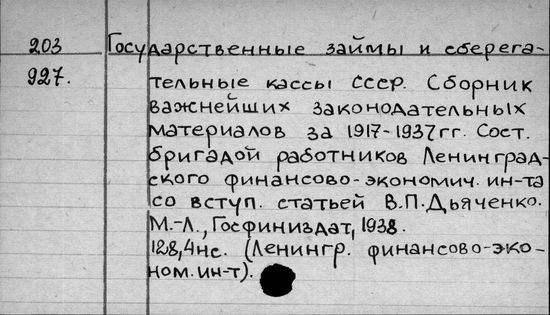 203 Государственные займы и сберега-
927. тельные кассы СССР. Сборник
важнейших законодательных
материалов за 1917-1937гг. Сост.
бригадой работников Ленинград-
ского финансово-экономич. ин-та
со вступ. статьей В.П.Дьяченко.
М.-Л., Госфиниздат, 1938.
128,4нс. (Ленингр. финансово-эко-
ном. ин-т).